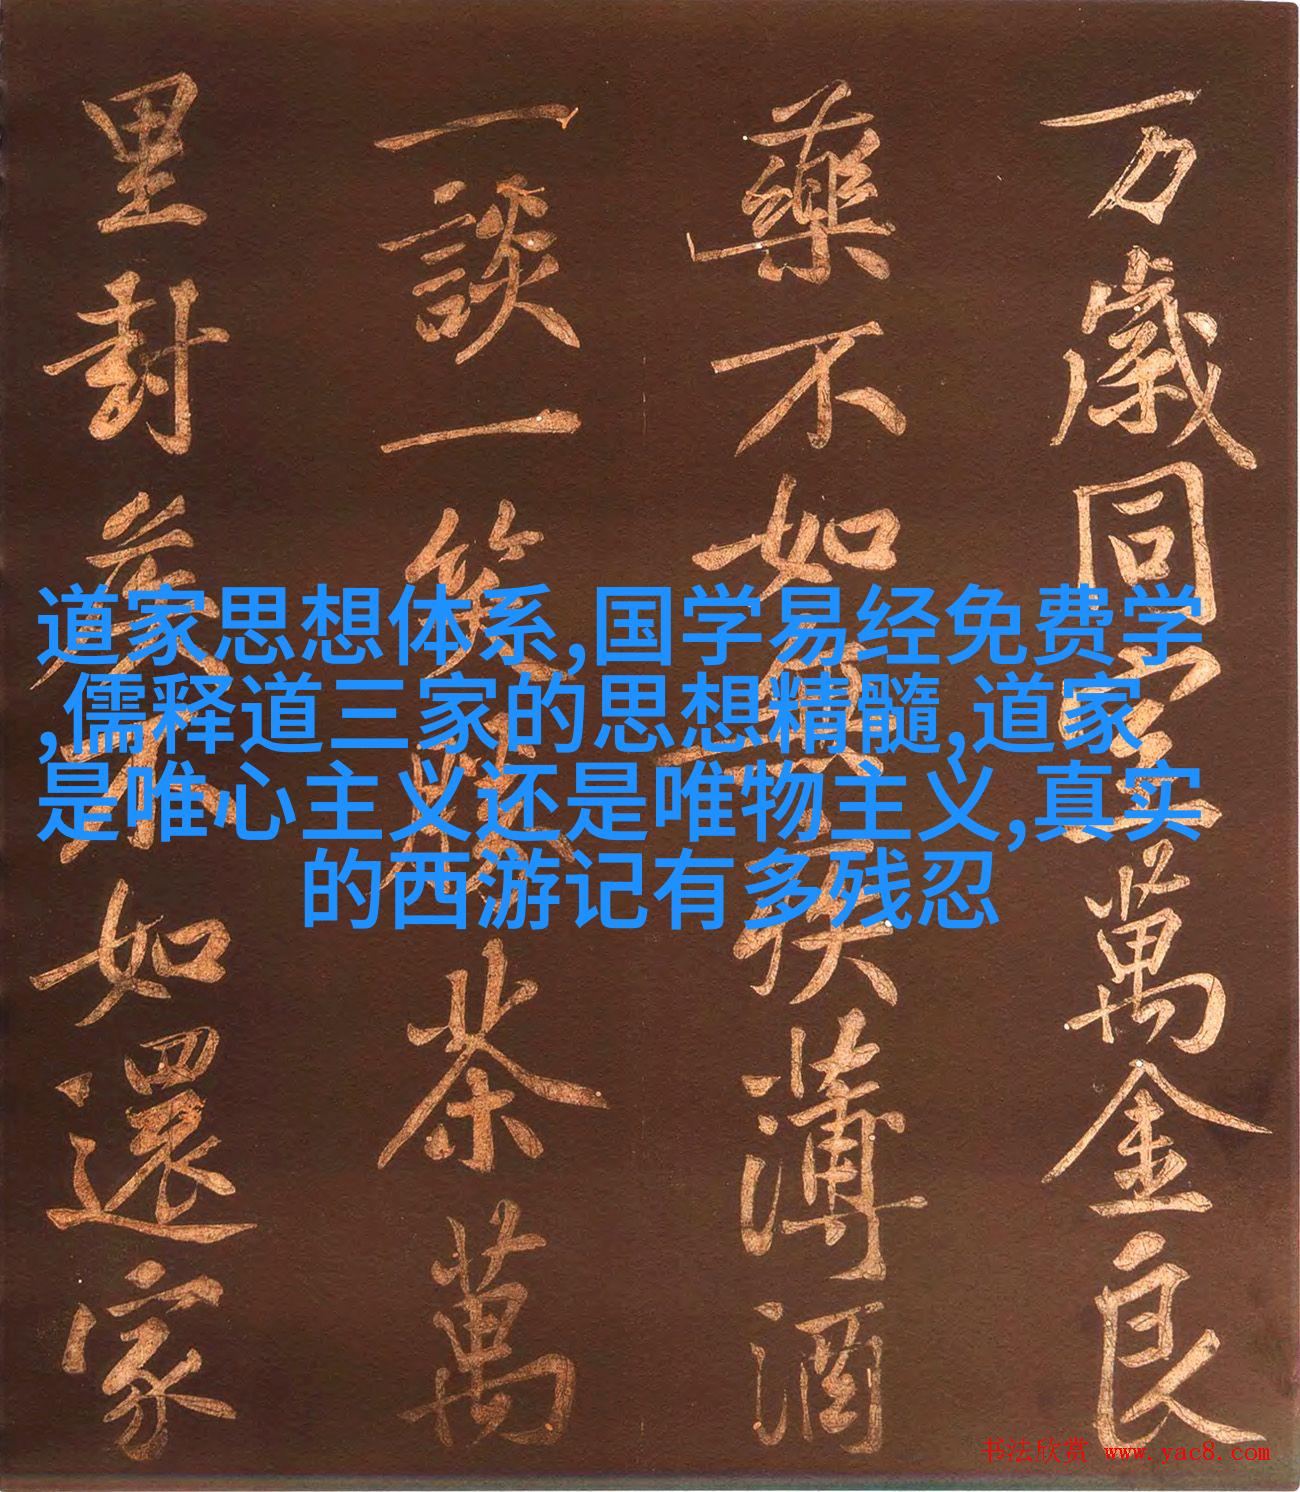 万歲同室萬金良
藥不如無疾薄酒
一談一笑勝茶萬
里封矦不如還家
道家思想体系,国学易经免费学
,儒释道三家的思想精髓,道家
是唯心主义还是唯物主义,真实
的西游记有多残忍
书法欣赏 www.yac8.com